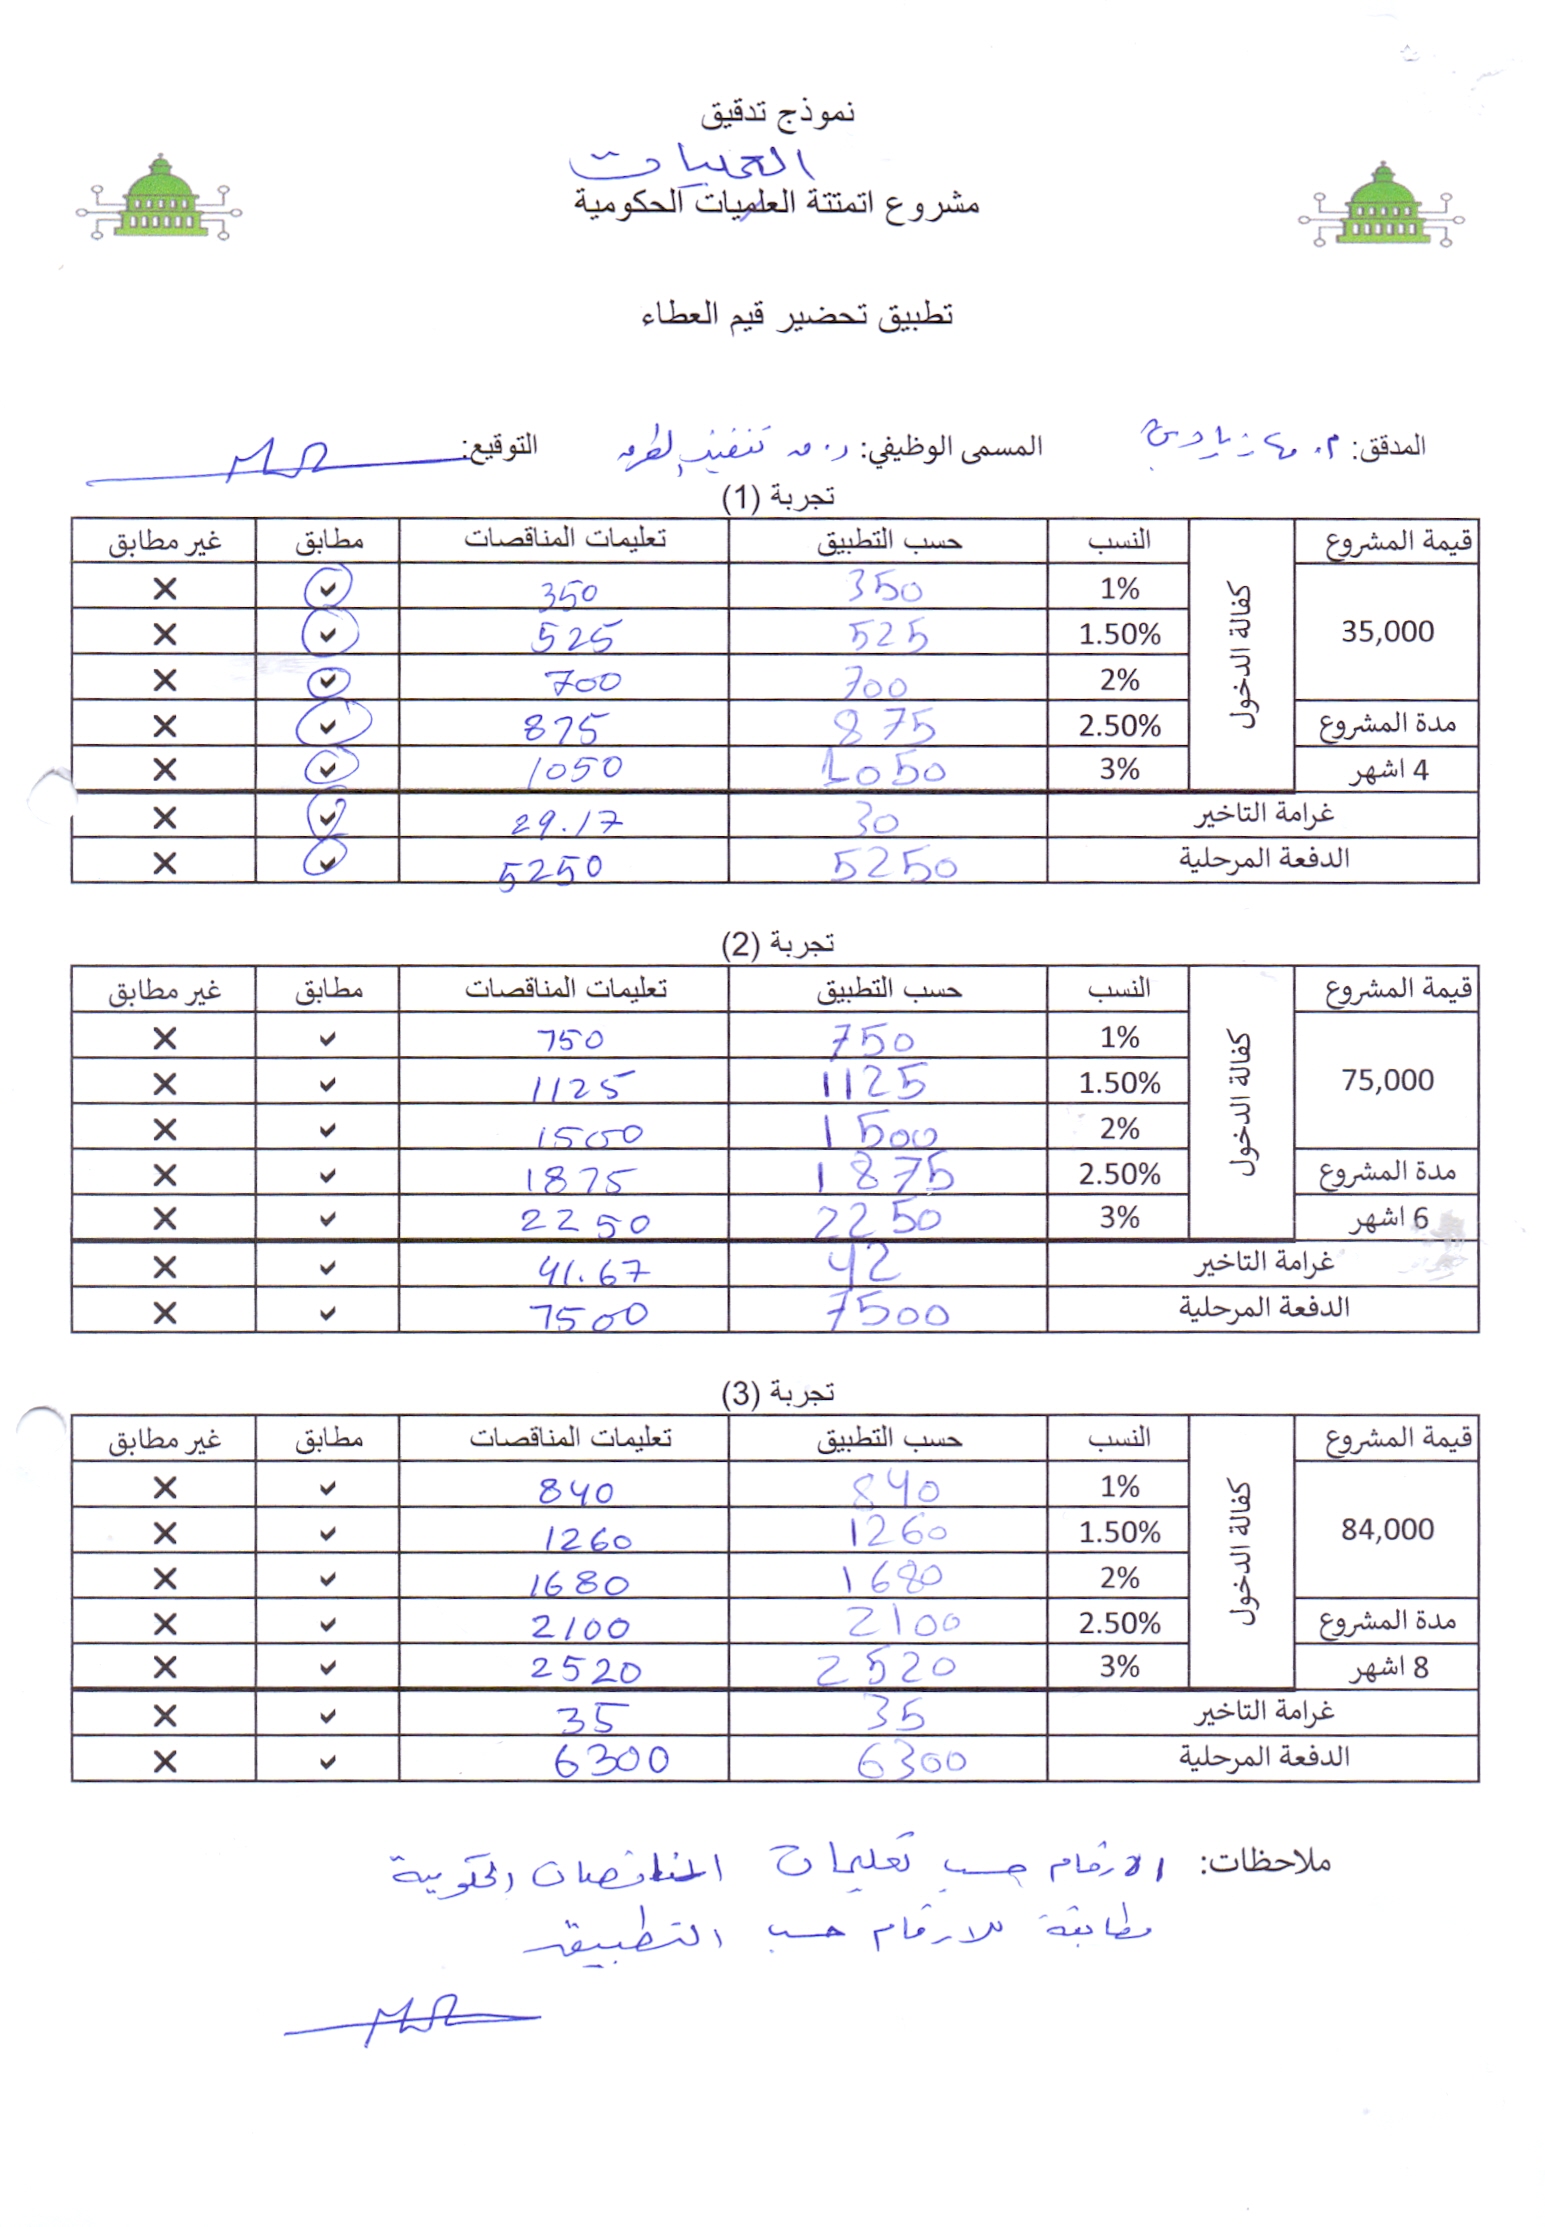 نموذج تدقيق
العمليات
مشروع اتمتتة العلميات الحكومية
تطبيق تحضير قيم العطاء
المدقق: م. المسمى الوظيفي: ر. تنفيذ الطرق التوقيع:
تجربة (1)
قيمة المشروع كفالة الدخول النسب حسب التطبيق تعليمات المناقصات مطابق غير مطابق
35,000 1% 350 350 ✓ ×
1.50% 525 525 ✓ ×
2% 700 700 ✓ ×
مدة المشروع 2.50% 875 875 ✓ ×
4 اشهر 3% 1050 1050 ✓ ×
غرامة التاخير 30 29.17 ✓ ×
الدفعة المرحلية 5250 5250 ✓ ×
تجربة (2)
قيمة المشروع كفالة الدخول النسب حسب التطبيق تعليمات المناقصات مطابق غير مطابق
75,000 1% 750 750 ✓ ×
1.50% 1125 1125 ✓ ×
2% 1500 1500 ✓ ×
مدة المشروع 2.50% 1875 1875 ✓ ×
6 اشهر 3% 2250 2250 ✓ ×
غرامة التاخير 42 41.67 ✓ ×
الدفعة المرحلية 7500 7500 ✓ ×
تجربة (3)
قيمة المشروع كفالة الدخول النسب حسب التطبيق تعليمات المناقصات مطابق غير مطابق
84,000 1% 840 840 ✓ ×
1.50% 1260 1260 ✓ ×
2% 1680 1680 ✓ ×
مدة المشروع 2.50% 2100 2100 ✓ ×
8 اشهر 3% 2520 2520 ✓ ×
غرامة التاخير 35 35 ✓ ×
الدفعة المرحلية 6300 6300 ✓ ×
ملاحظات: الارقام حسب تعليمات المناقصات الحكومية
مطابقة للارقام حسب التطبيق